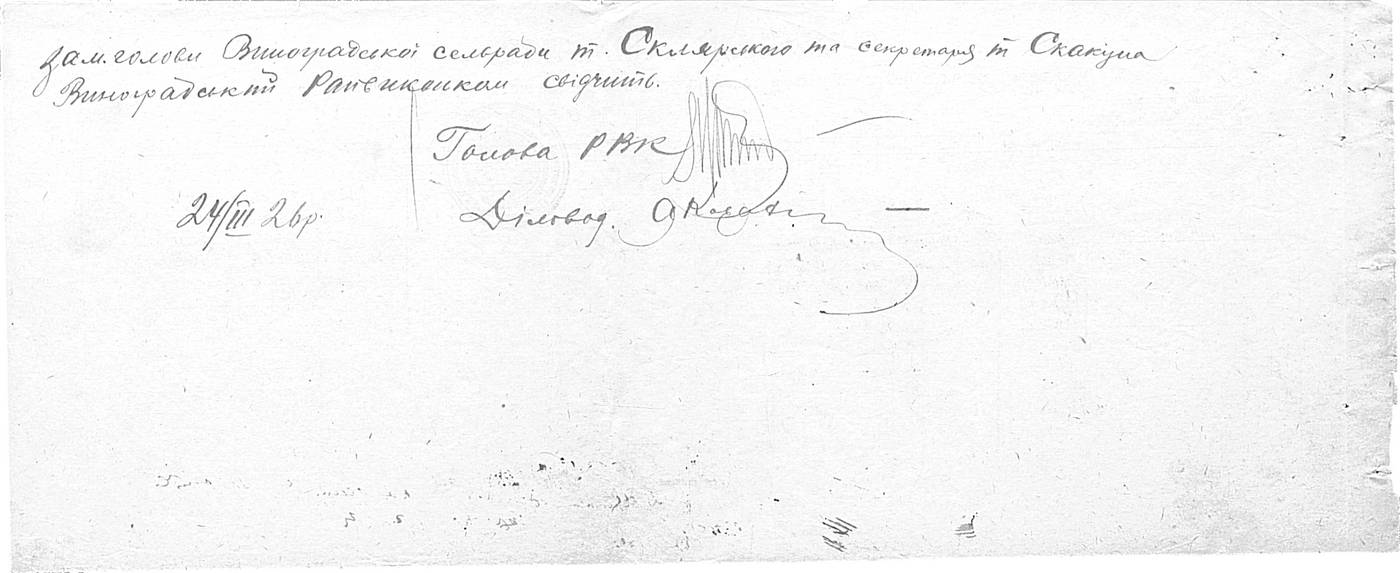 зам. голови Виноградської сельради т. Склярського та секретаря т Скакуна
Виноградський Райвиконком свідчить.
Голова РВК
24/III 26р.
Діловод.